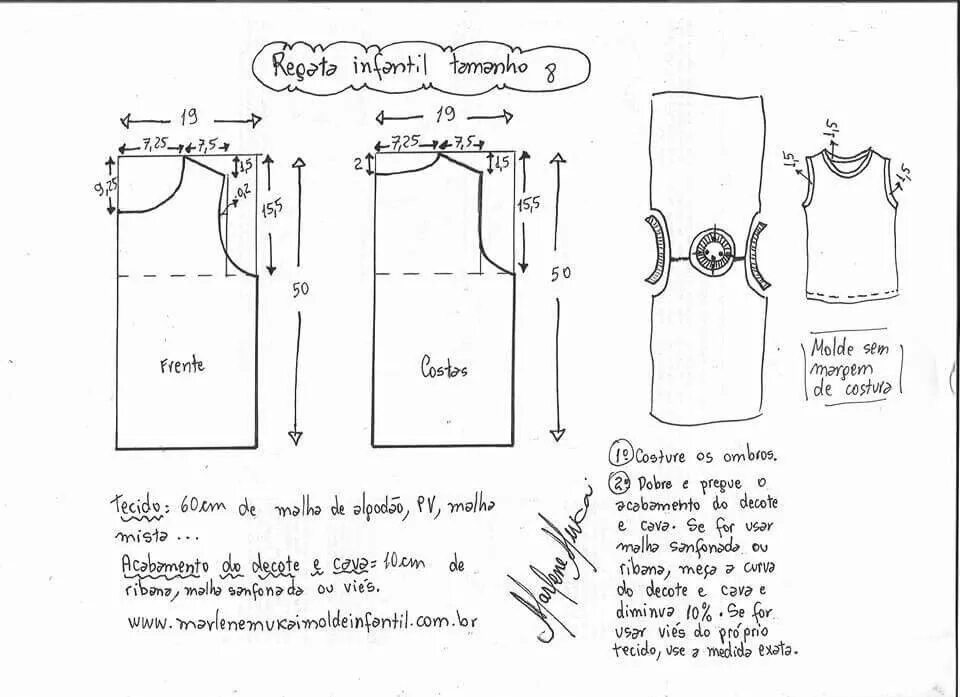 Regata infantil tamanho 8
19
7,25 7,5
9,25
1,5
0,2
15,5
50
Frente
19
7,25 7,5
2
1,5
15,5
50
Costas
1,5
1,5
1,5
Molde sem
margem
de costura
Tecido: 60cm de malha de algodão, PV, malha
mista ...
Acabamento do decote e cava= 10cm de
ribana, malha sanfonada ou viés.
www.marlenemukaimoldeinfantil.com.br
Marlene Mukai
1º Costure os ombros.
2º Dobre e pregue o
acabamento do decote
e cava. Se for usar
malha sanfonada ou
ribana, meça a curva
do decote e cava e
diminua 10%. Se for
usar viés do próprio
tecido, use a medida exata.